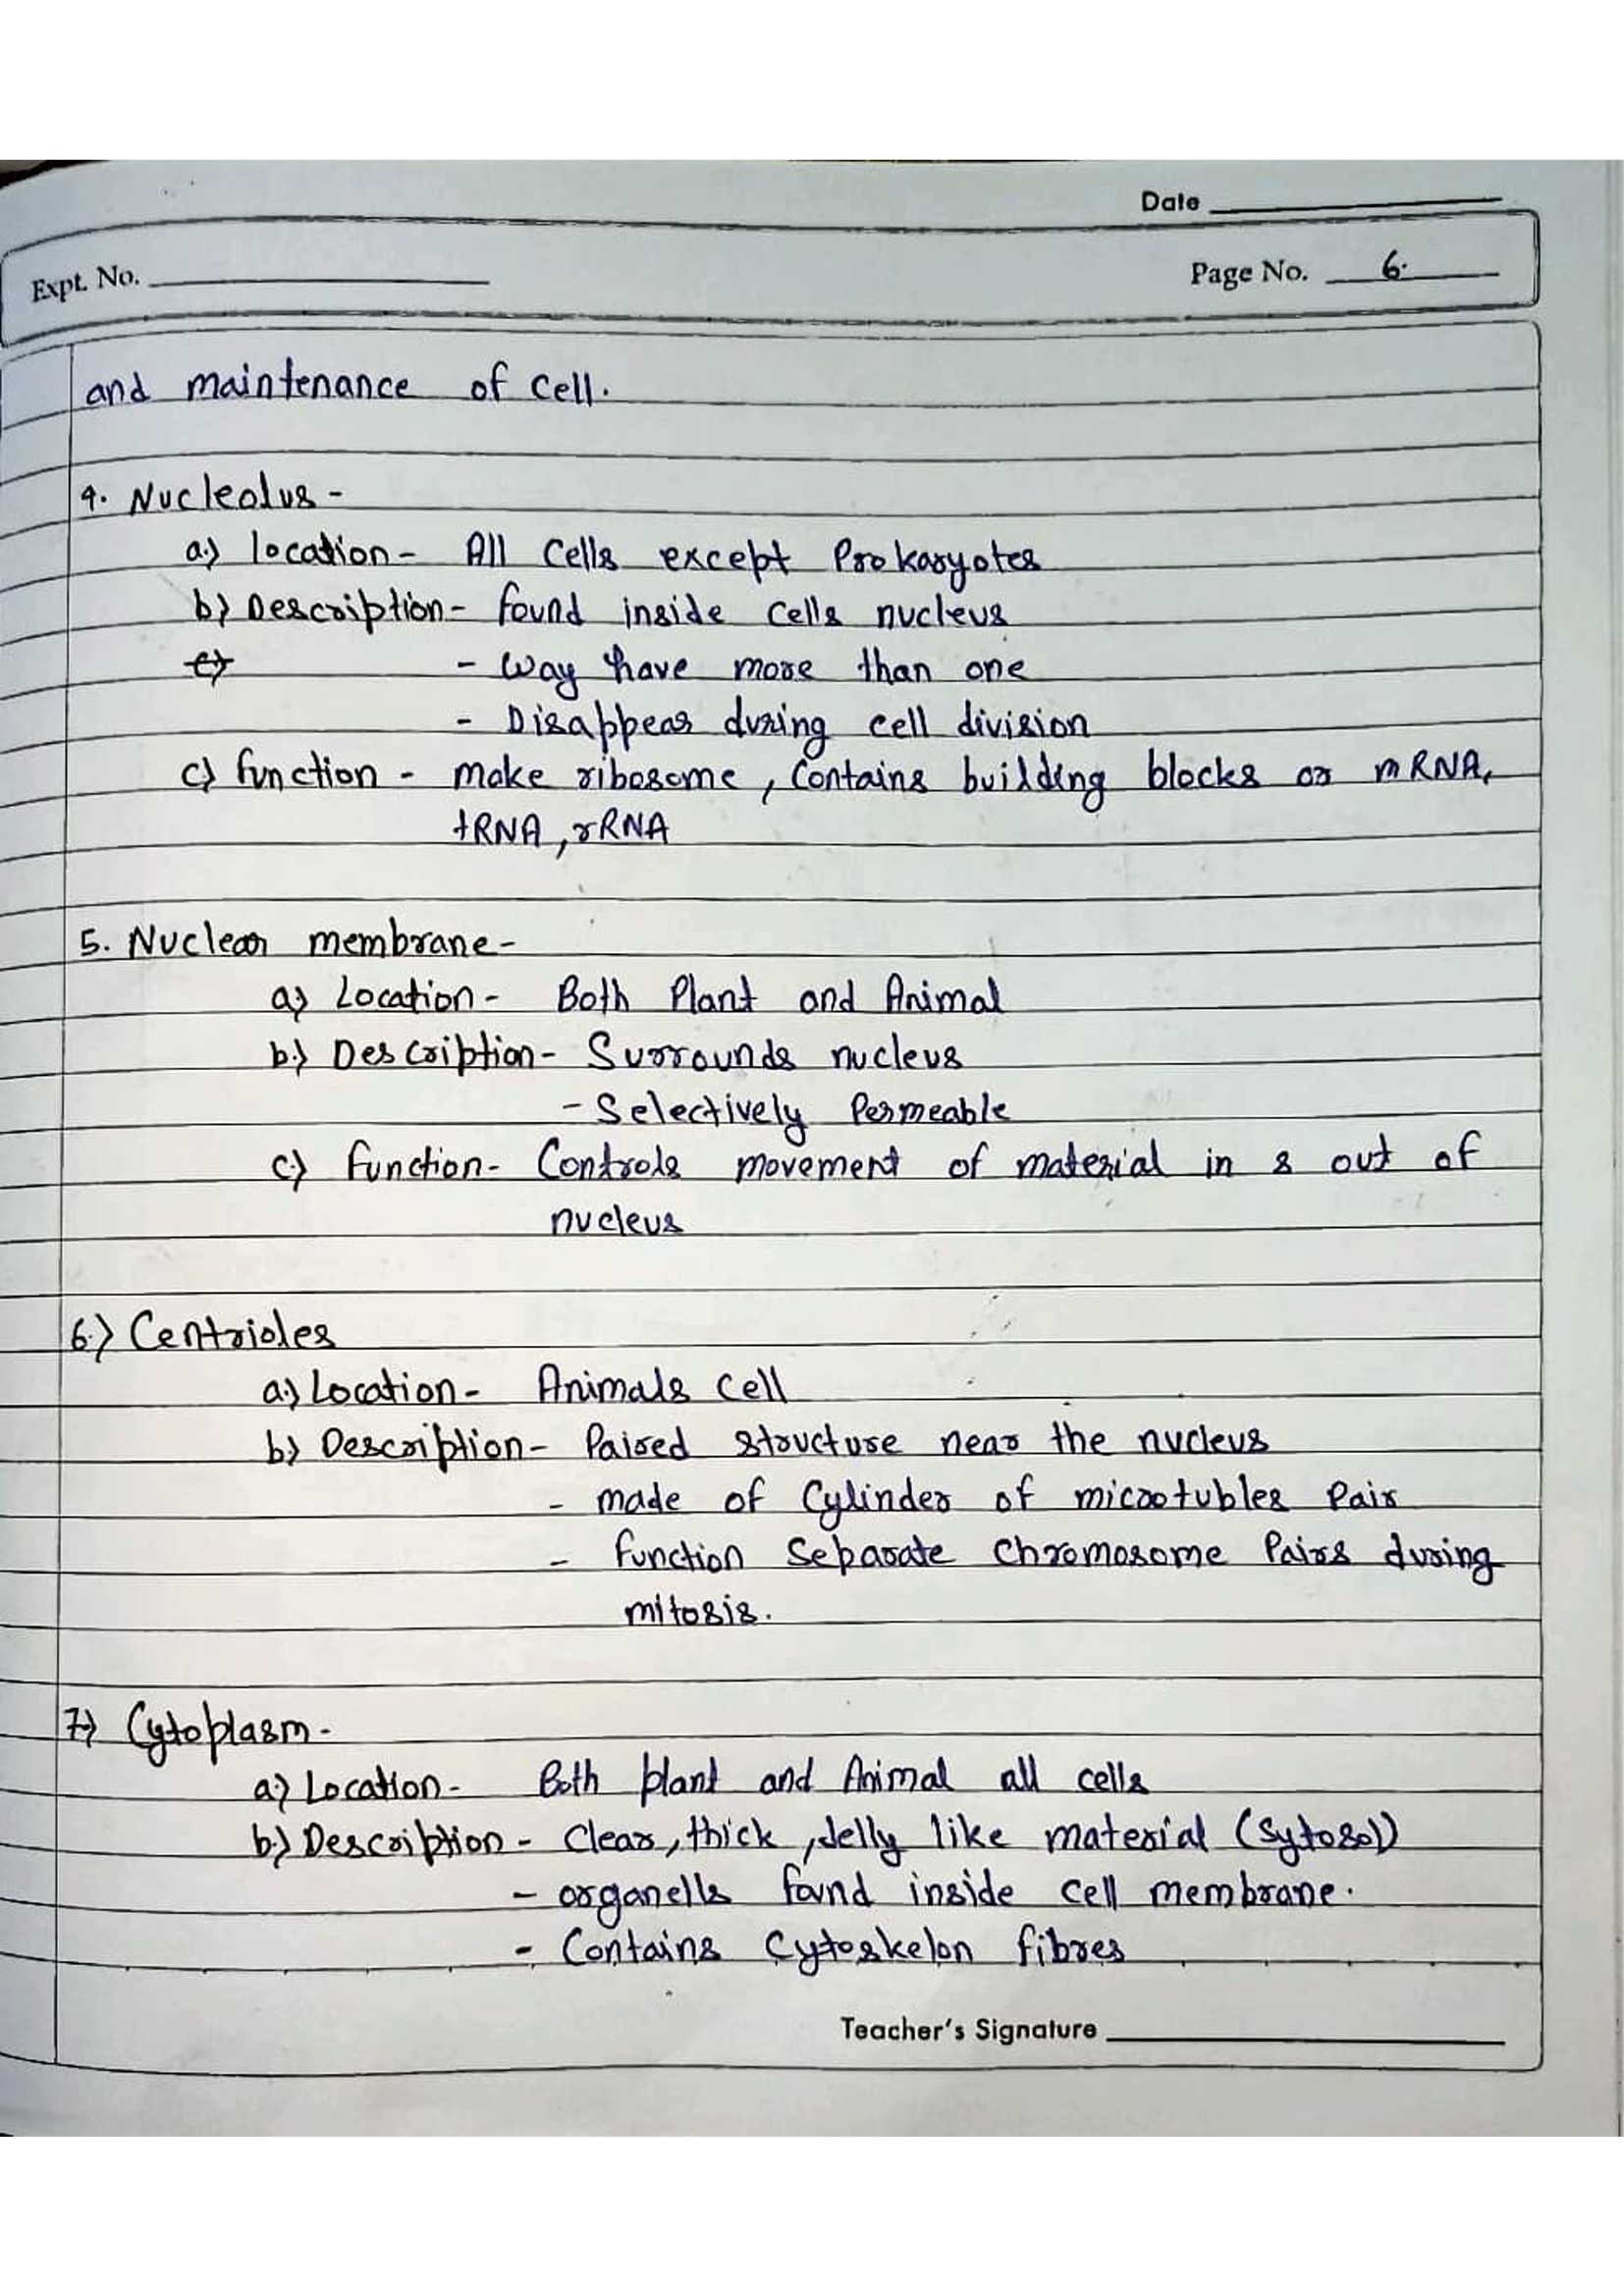 Date
Expt. No.
Page No. 6.
and maintenance of cell.
4. Nucleolus -
a.) location - All Cells except Prokaryotes
b) Description - found inside cells nucleus
c)
- Way have more than one
- Disappear during cell division
c) function - make ribosome, Contains building blocks or mRNA,
tRNA, rRNA
5. Nuclear membrane -
a) Location - Both Plant and Animal
b.) Description - Surrounds nucleus
- Selectively Permeable
c.) function - Controls movement of material in & out of
nucleus
6.) Centrioles
a.) Location - Animals cell
b) Description - Paired structure near the nucleus
- made of Cylinder of microtubles Pair
- function Separate Chromosome Pairs during
mitosis.
7) Cytoplasm -
a) Location - Both plant and Animal all cells
b.) Description - Clear, thick, Jelly like material (Sytosol)
- organells found inside cell membrane.
- Contains Cytoskelon fibres
Teacher's Signature